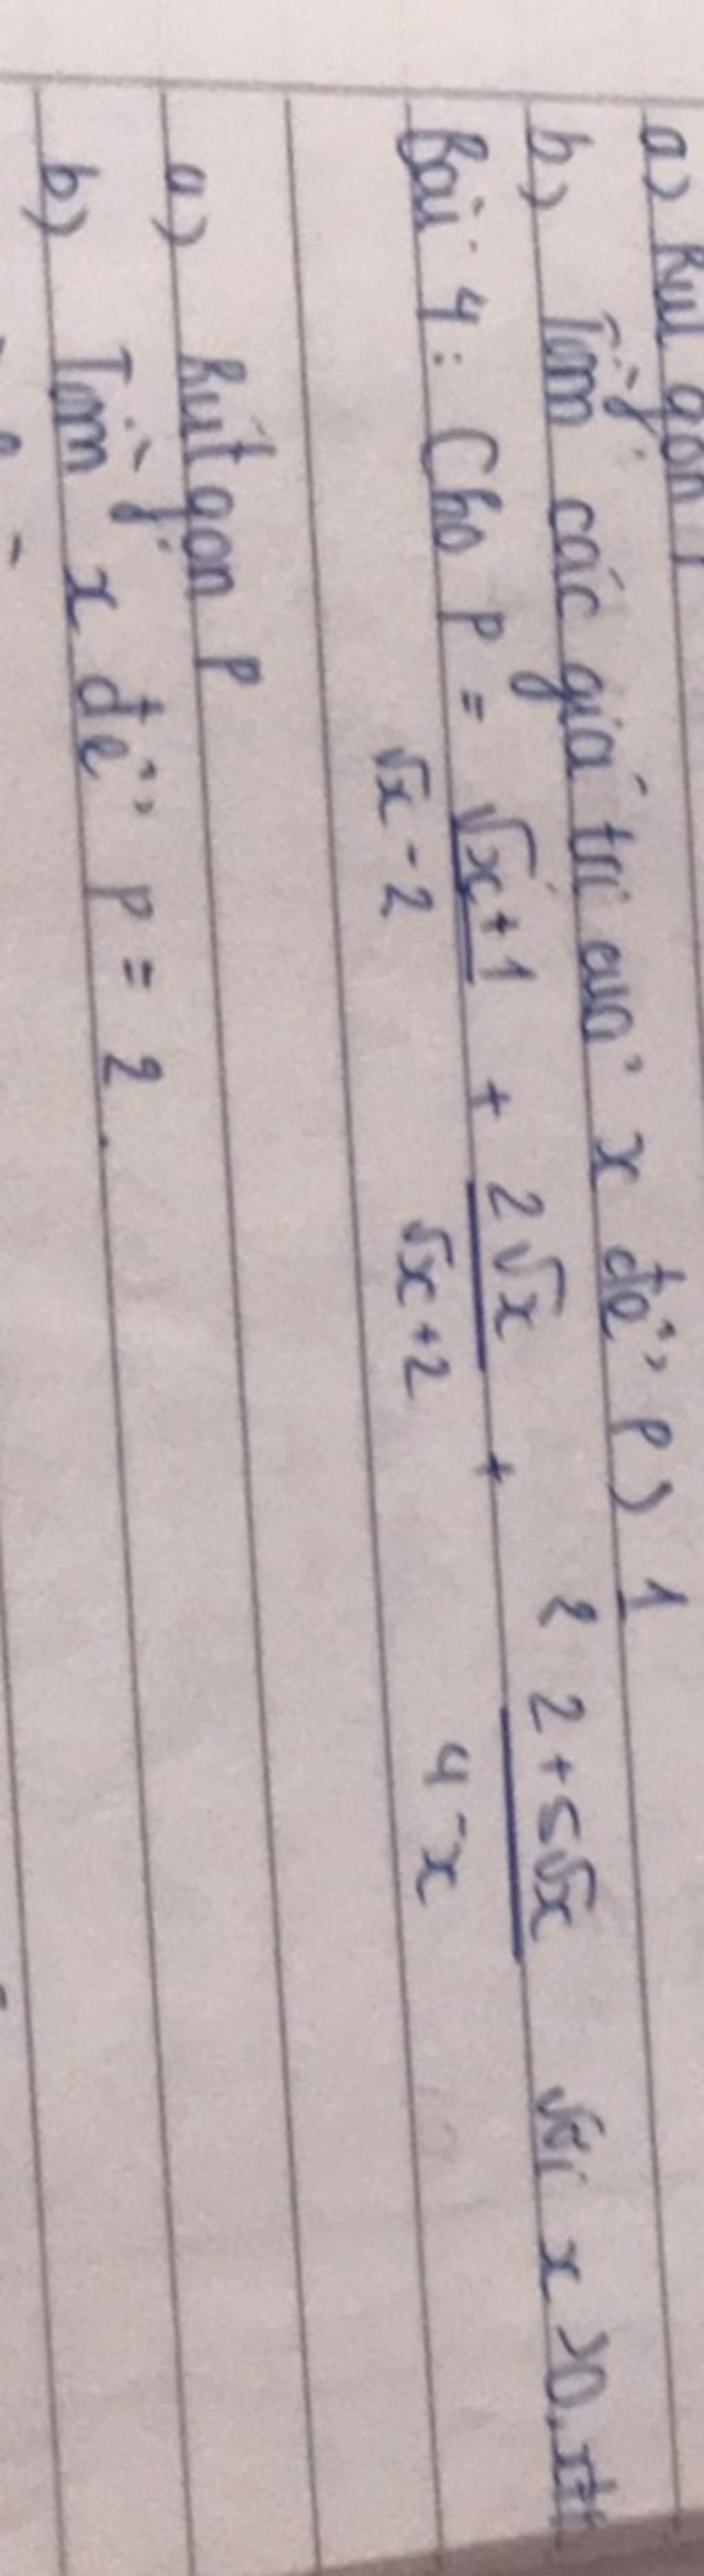 a) Rút gọn P
b) Tìm các giá trị của x để P > 1
2
Bài 4: Cho P = √x+1 / √x-2 + 2√x / √x+2 + 2+5√x / 4-x với x >0,
a) Rút gọn P
b) Tìm x để P = 2.